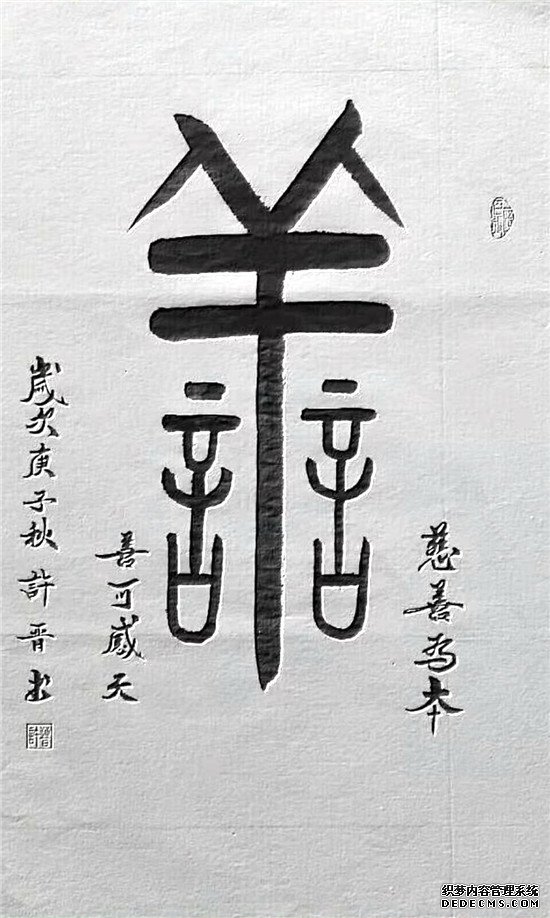 譱
慈善为本
善可感天
歲次庚子秋許晋书
织梦内容管理系统
DEDECMS.COM